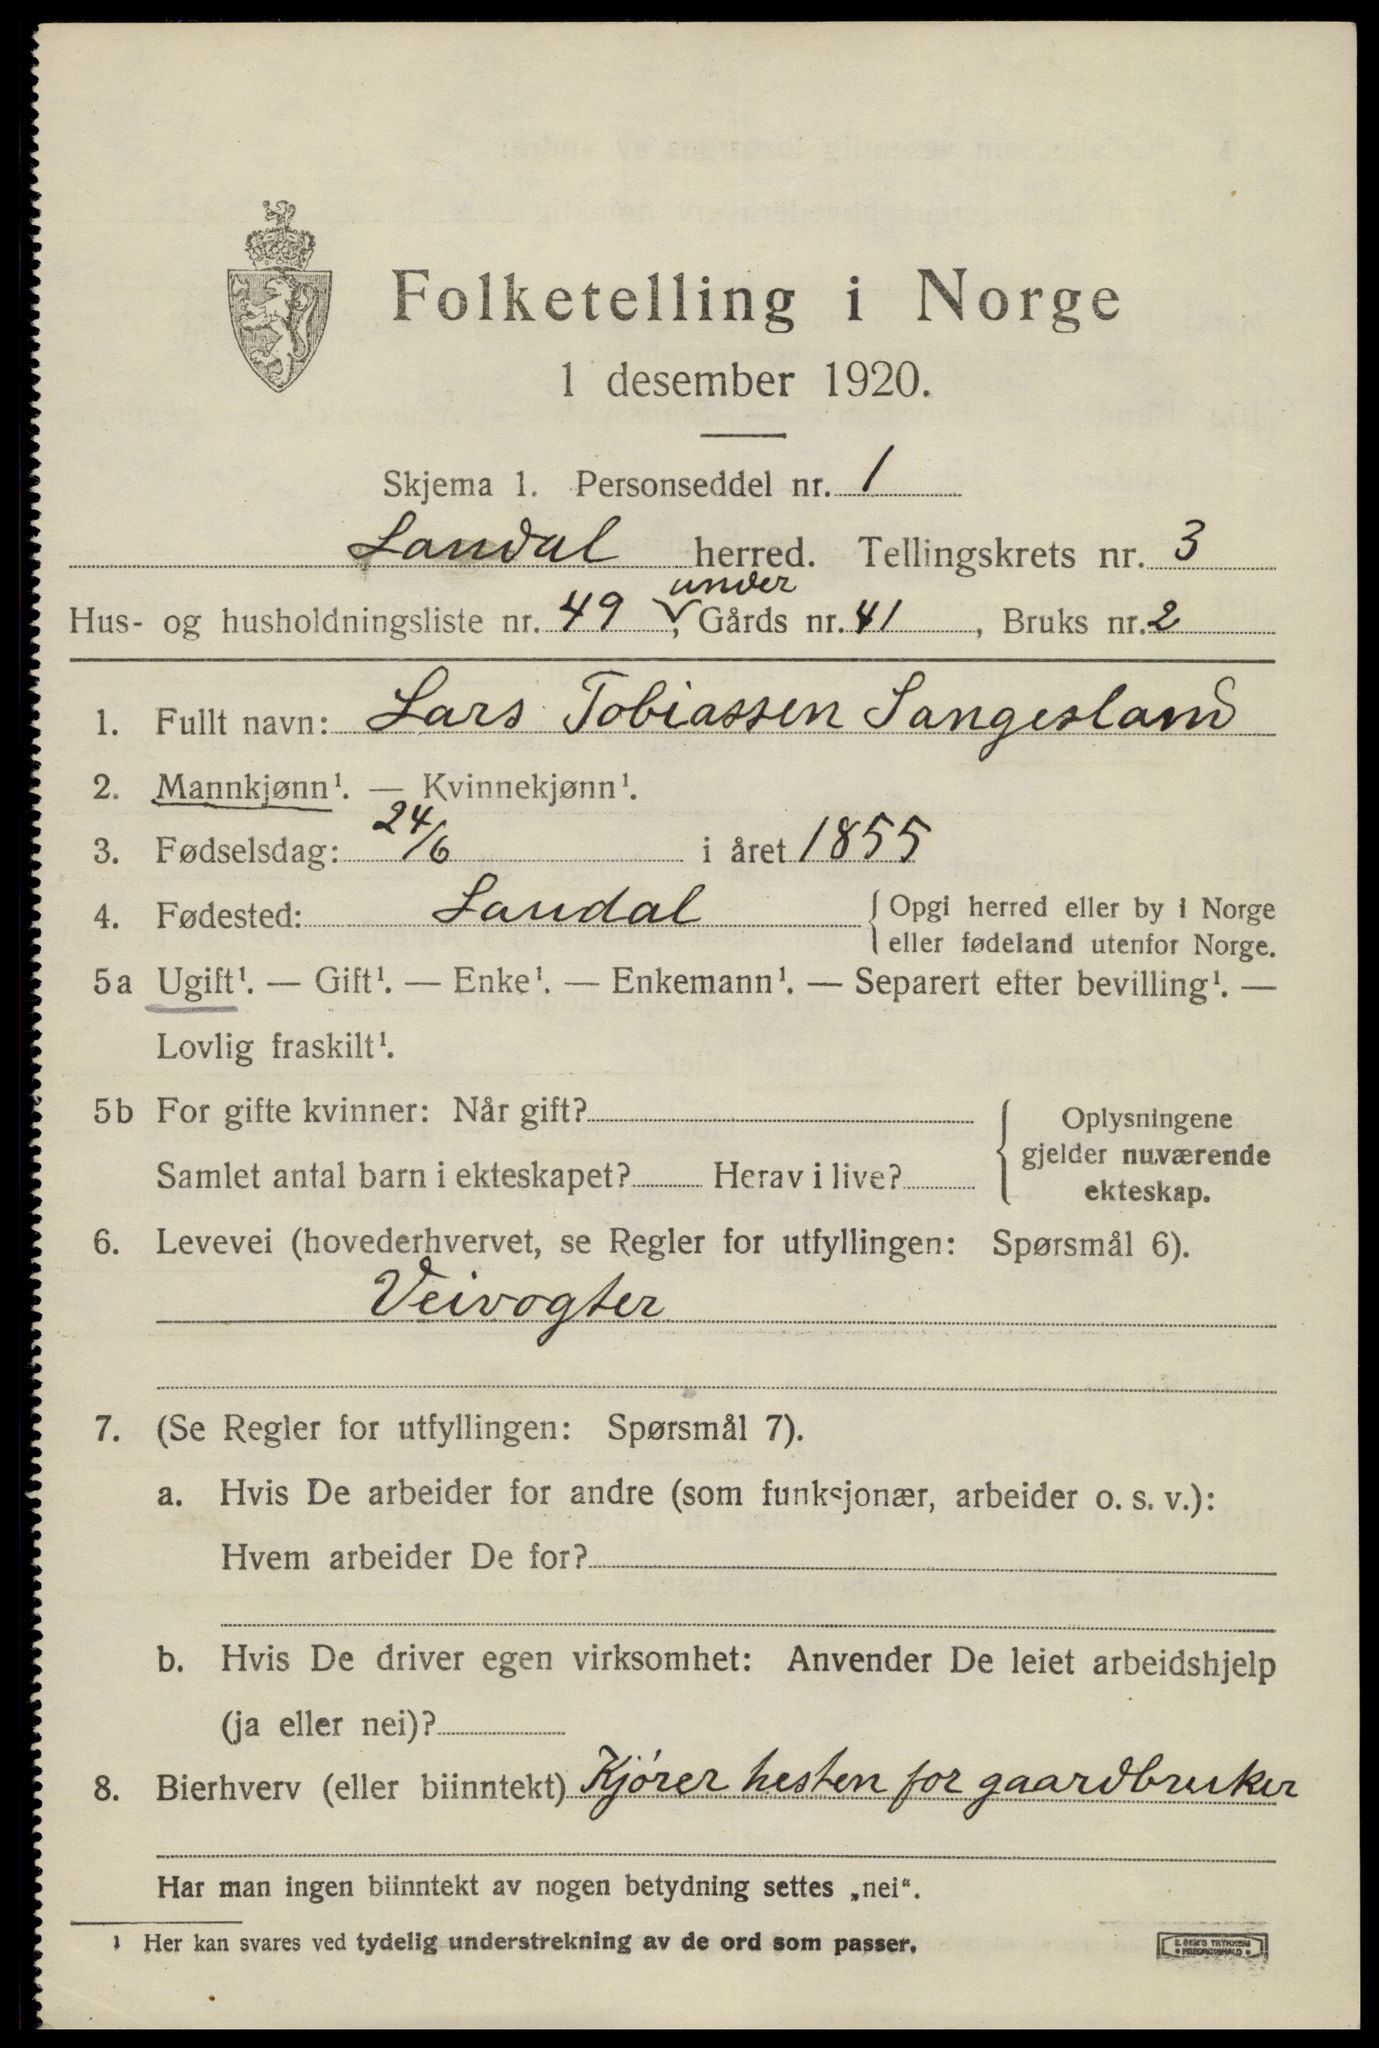 Folketelling i Norge
1 desember 1920.
Skjema 1. Personseddel nr. 1
Laudal herred. Tellingskrets nr. 3
under
Hus- og husholdningsliste nr. 49, Gårds nr. 41, Bruks nr. 2
1. Fullt navn: Lars Tobiassen Sangesland
2. Mannkjønn¹. — Kvinnekjønn¹.
3. Fødselsdag: 24/6 i året 1855
4. Fødested: Laudal { Opgi herred eller by i Norge
eller fødeland utenfor Norge.
5a Ugift¹. — Gift¹. — Enke¹. — Enkemann¹. — Separert efter bevilling¹. —
Lovlig fraskilt¹.
5b For gifte kvinner: Når gift? { Oplysningene
gjelder nuværende
Samlet antal barn i ekteskapet? Herav i live? ekteskap.
6. Levevei (hovederhvervet, se Regler for utfyllingen: Spørsmål 6).
Veivogter
7. (Se Regler for utfyllingen: Spørsmål 7).
a. Hvis De arbeider for andre (som funksjonær, arbeider o. s. v.):
Hvem arbeider De for?
b. Hvis De driver egen virksomhet: Anvender De leiet arbeidshjelp
(ja eller nei)?
8. Bierhverv (eller biinntekt) Kjører hesten for gaardbruker
Har man ingen biinntekt av nogen betydning settes „nei".
¹ Her kan svares ved tydelig understrekning av de ord som passer.